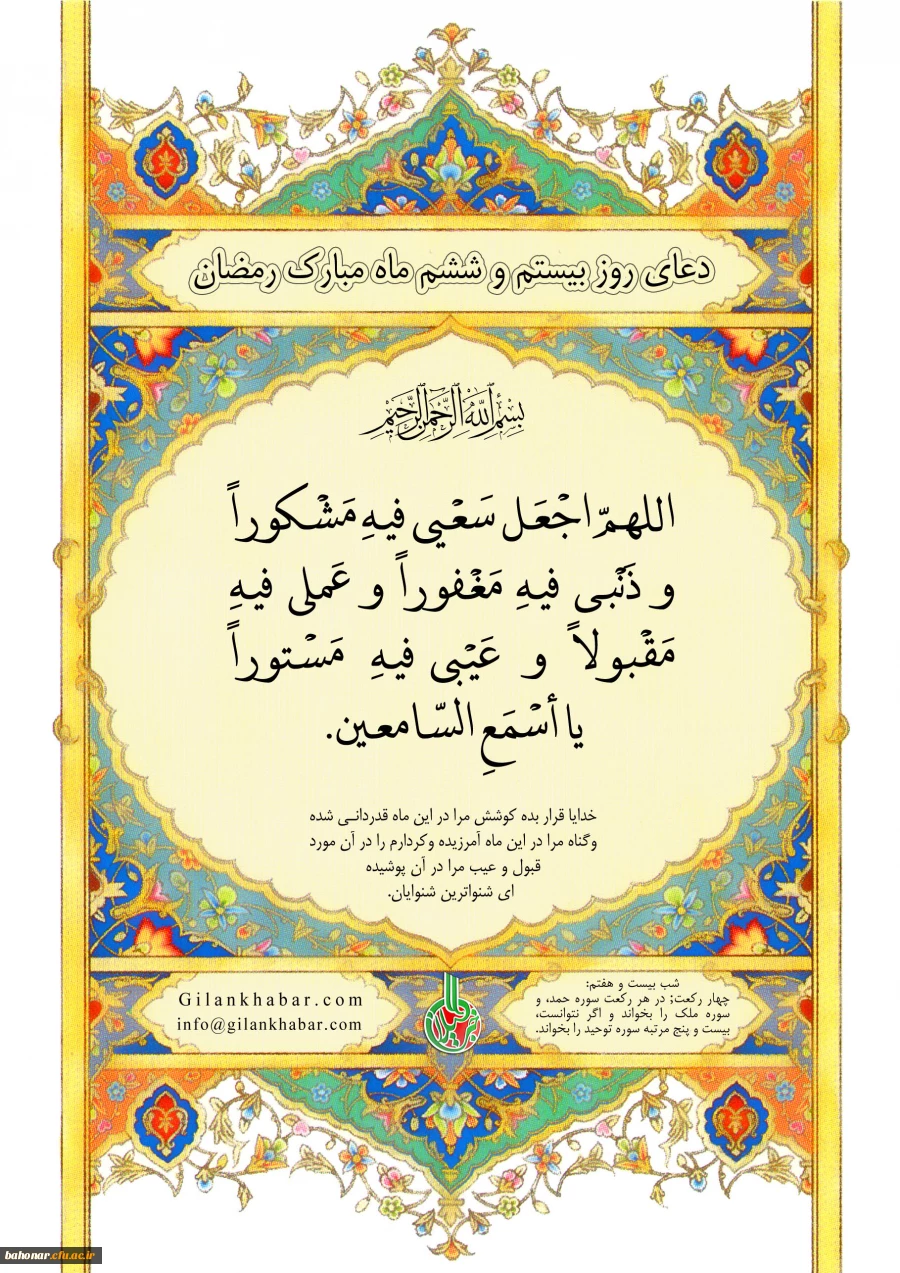 دعای روز بیستم و ششم ماه مبارک رمضان
بِسْمِ ٱللَّهِ ٱلرَّحْمَٰنِ ٱلرَّحِيمِ
اللهمّ اجْعَل سَعْیي فیهِ مَشْکوراً
و ذَنْبی فیهِ مَغْفوراً و عَملی فیهِ
مَقْبولاً و عَیْبی فیهِ مَسْتوراً
یا أسْمَعِ السّامعین.
خدایا قرار بده کوشش مرا در این ماه قدردانـی شده
وگناه مرا در این ماه آمرزیده وکردارم را در آن مورد
قبول و عیب مرا در آن پوشیده
ای شنواترین شنوایان.
شب بیست و هفتم:
چهار رکعت; در هر رکعت سوره حمد، و
سوره ملک را بخواند و اگر نتوانست،
بیست و پنج مرتبه سوره توحید را بخواند.
Gilankhabar.com
info@gilankhabar.com
bahonar.cfu.ac.ir